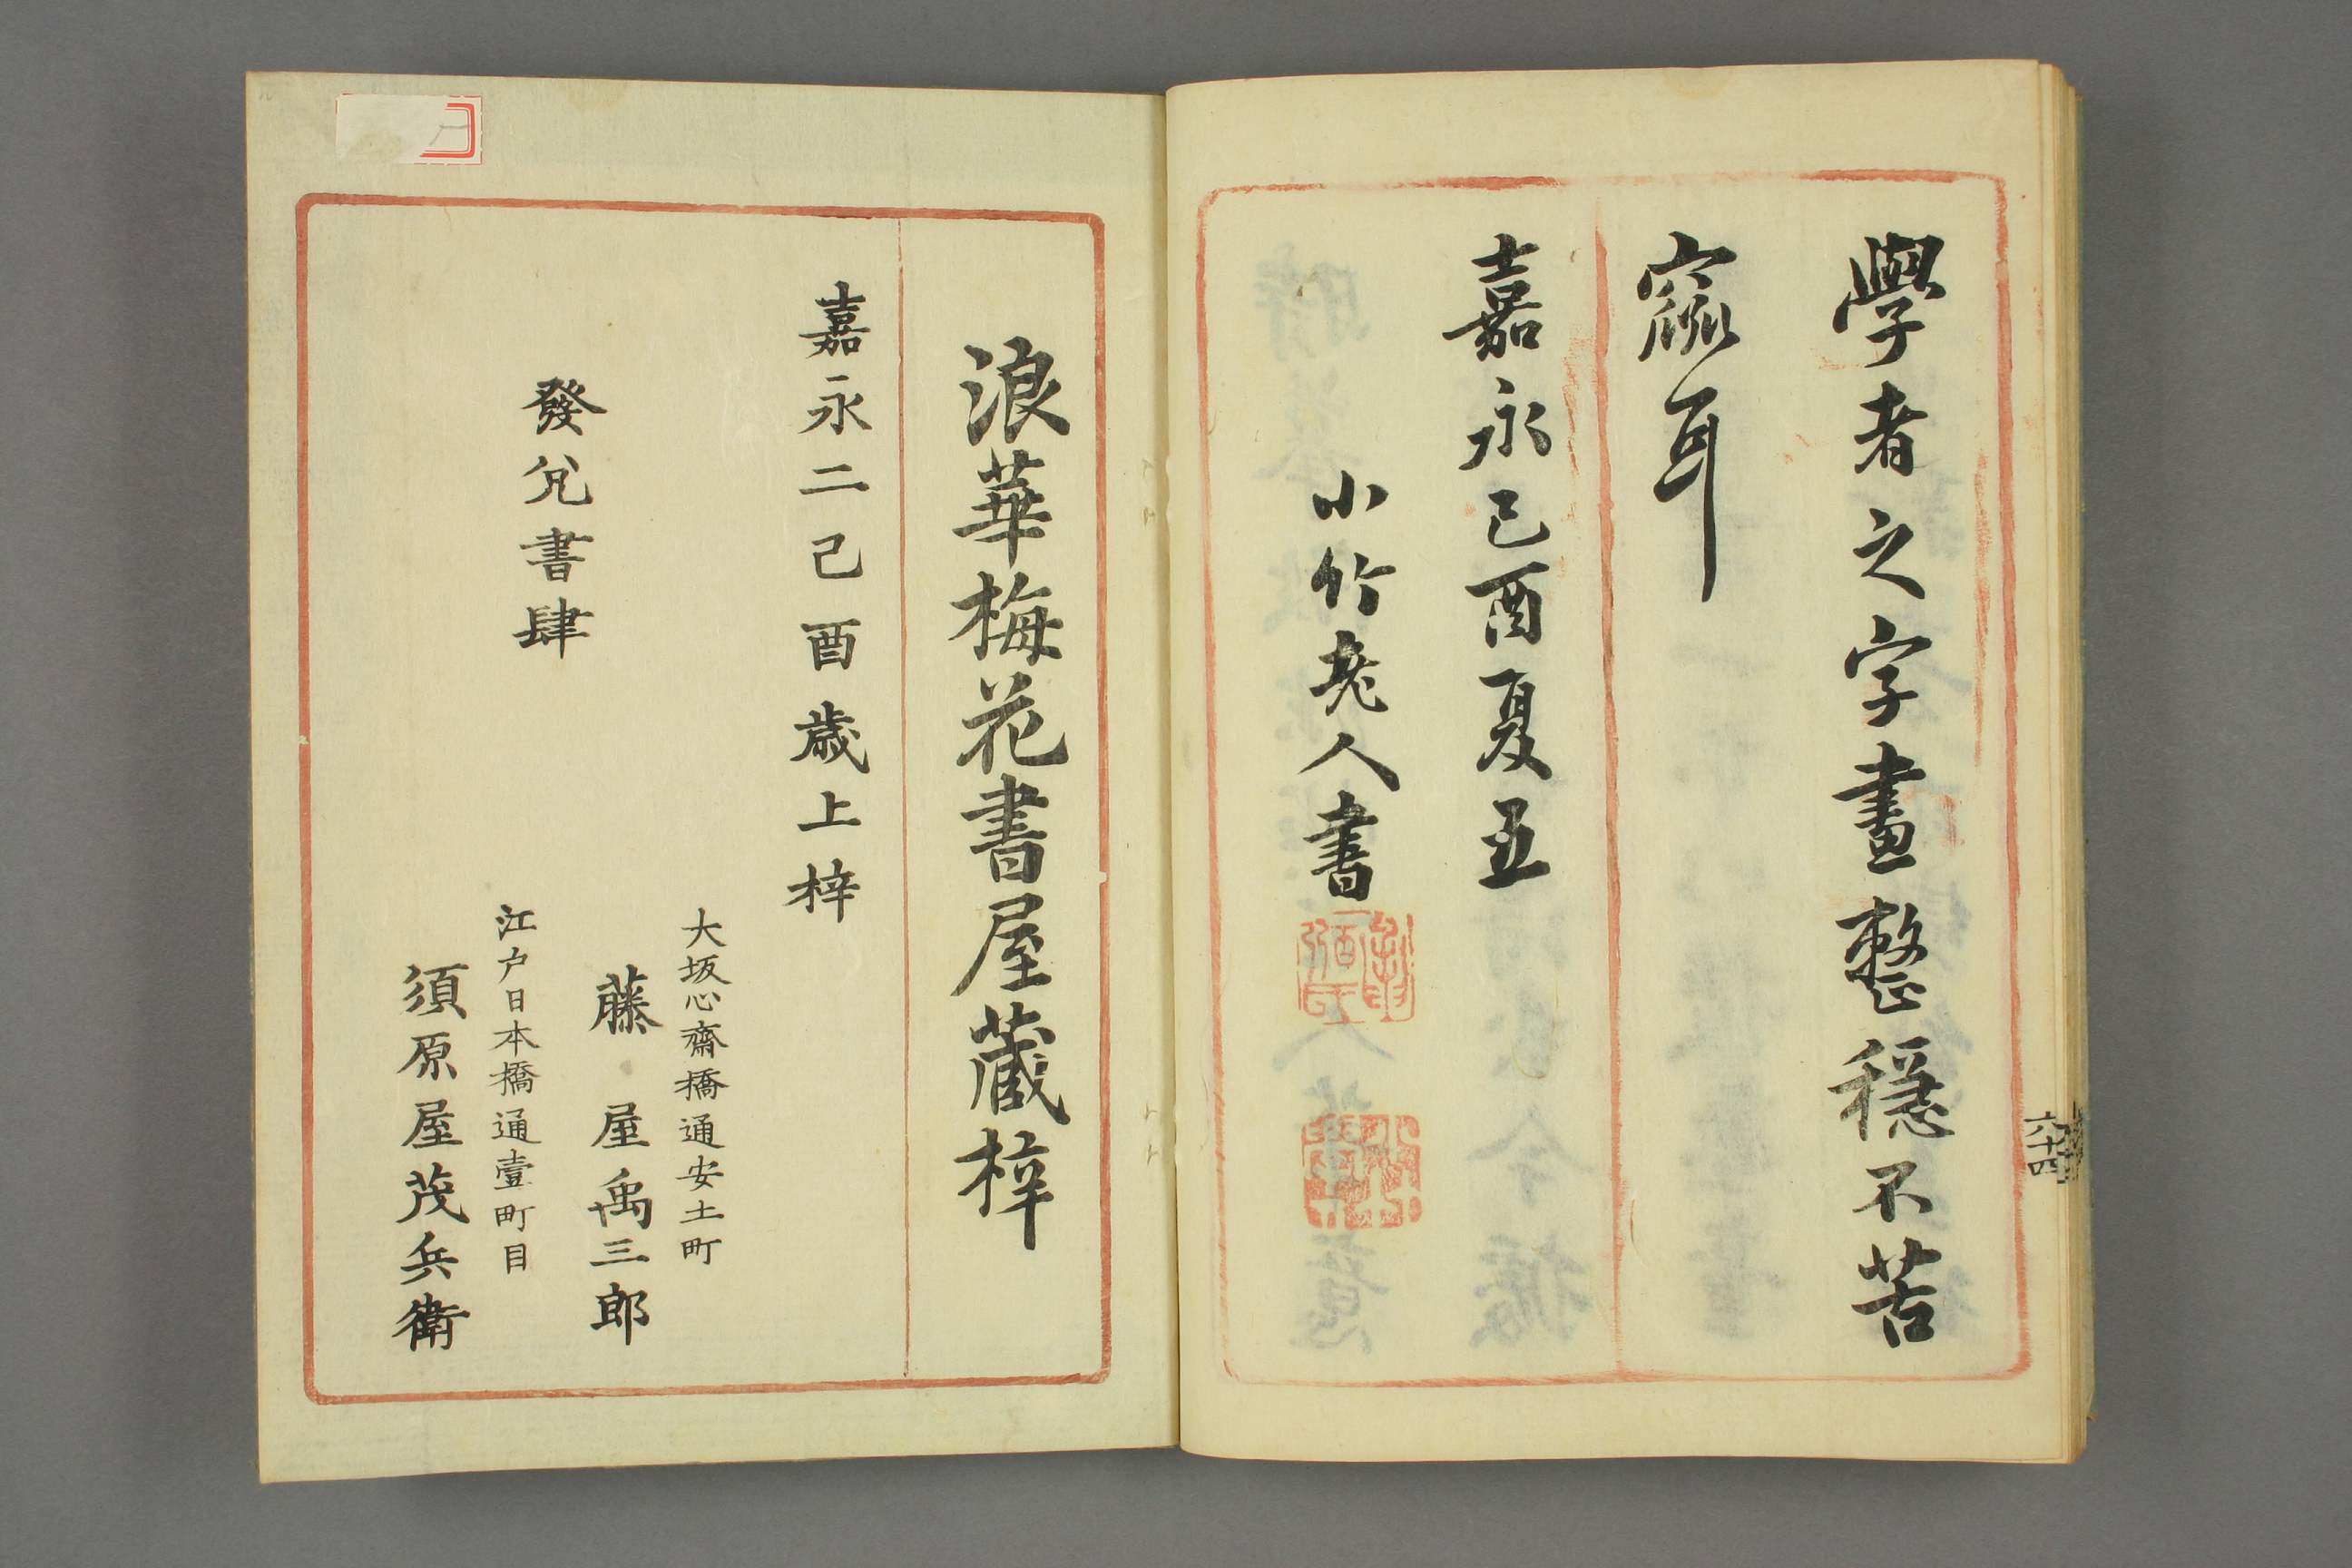 學者之字畫整穩不苦
窳耳
嘉永己酉夏五
小竹老人書
六十四
浪華梅花書屋藏梓
嘉永二己酉歲上梓
大坂心齋橋通安土町
藤屋禹三郎
發兌書肆
江戸日本橋通壹町目
須原屋茂兵衛